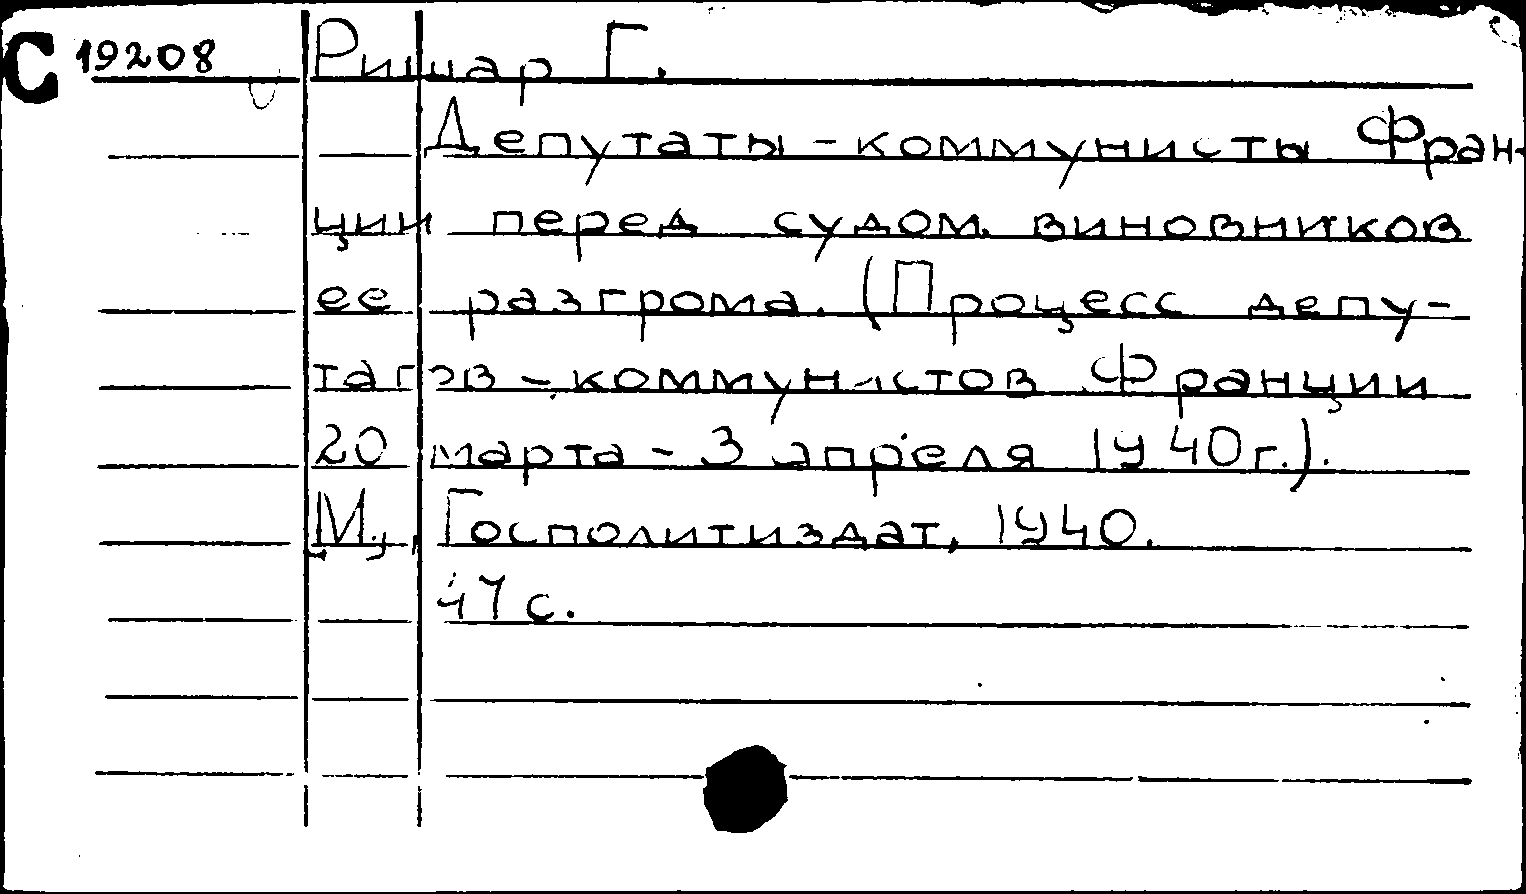 С 19208 Ришар Г.
Депутаты - коммунисты Фран-
ции перед судом виновников
ее разгрома. (Процесс депу-
татов - коммунистов Франции
20 марта - 3 апреля 1940 г.).
М., Госполитиздат, 1940.
47 с.